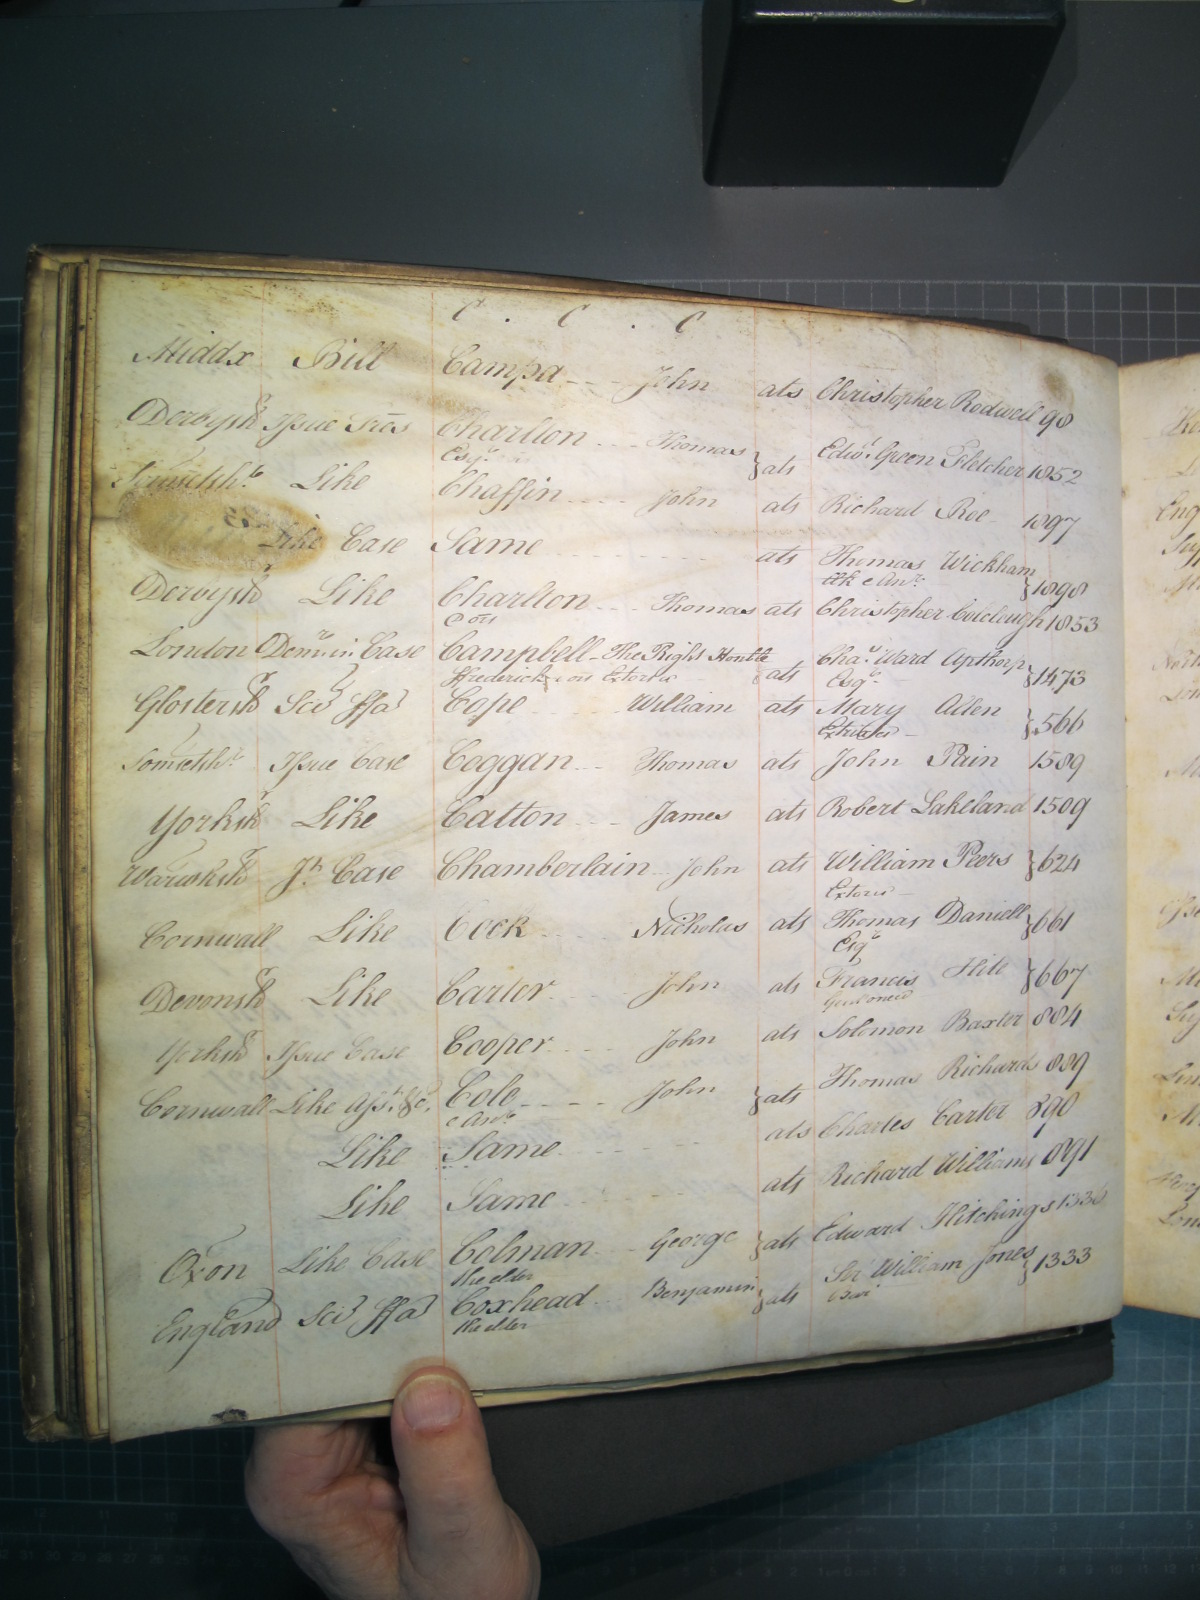 C . C . C
Middx Bill Campa --- John ats Christopher Rodwell 98
Derbysh Issue Tres Charlton --- Thomas } ats Edwd. Green Fletcher 1852
Esqr.
Somsetshr. Like Chaffin ---- John ats Richard Roe 1897
Like Case Same ats Thomas Wickham } 1898
Derbysh Like Charlton --- Thomas ats Christopher Colclough 1853
London Demr. in Case Campbell - The Right Honble ats Chas. Ward Apthorp } 1473
Frederick Esqr.
Glostersh Sci ffa Cope William ats Mary Allen } 566
Somsetshr. Issue Case Coggan --- Thomas ats John Pain 1589
Yorksh Like Catton --- James ats Robert Lakeland 1509
Warwksh Jt. Case Chamberlain John ats William Peers } 624
Cornwall Like Cock ---- Nicholas ats Thomas Daniell } 661
Esqr
Devonsh Like Carter ---- John ats Francis Hill } 667
Yorksh Issue Case Cooper ---- John ats Solomon Baxter 884
Cornwall Like Asst. &c. Cole ---- John } ats Thomas Richards 889
Like Same ats Charles Carter 890
Like Same ats Richard Williams 891
Oxon Like Case Colman George } ats Edward Hitchings
the elder
England Sci ffa Coxhead --- Benjamin } ats Sir William Jones } 1333
the elder Bart